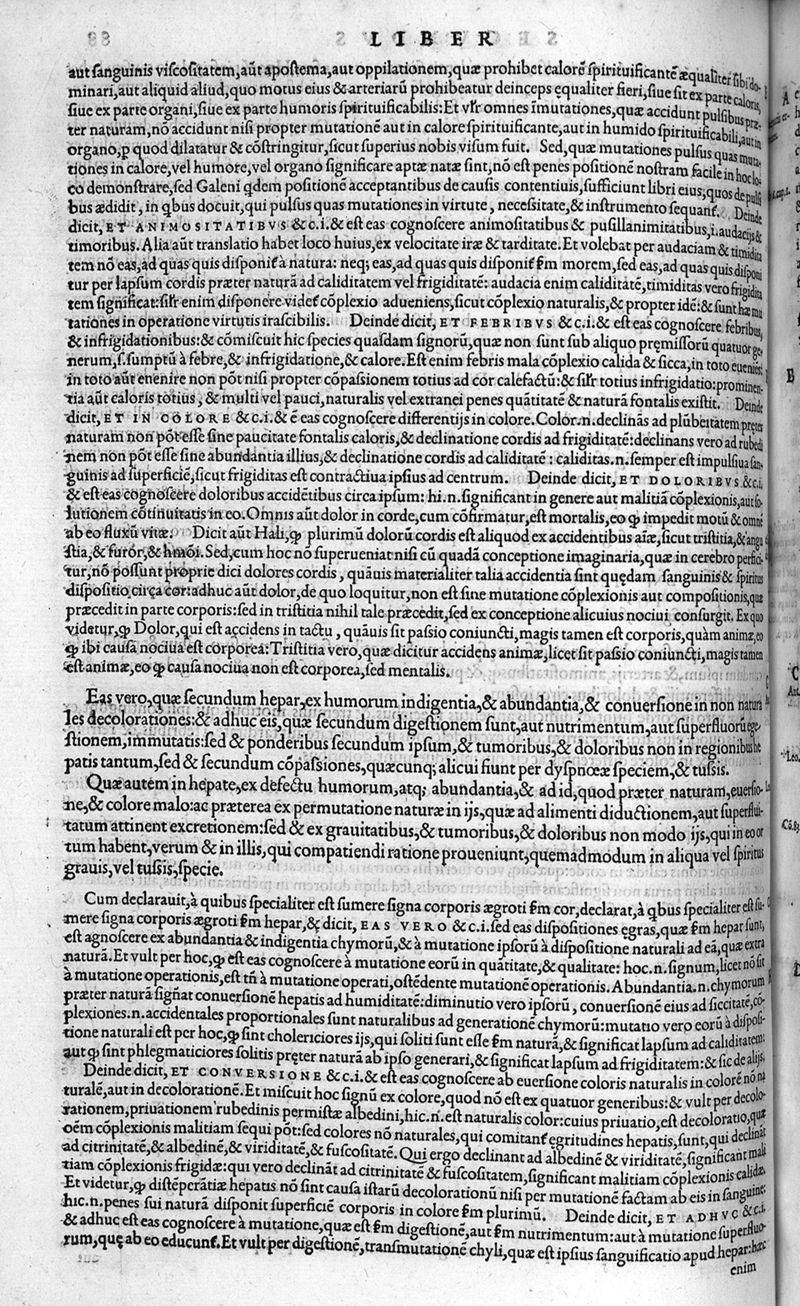 LIBER
aut sanguinis viscositatem, aũt apostema, aut oppilationem, quæ prohibet calorẽ spirituificantẽ æqualiter sibi do-
minari, aut aliquid aliud, quo motus eius & arteriarũ prohibeatur deinceps equaliter fieri, siue sit ex parte caloris,
siue ex parte organi, siue ex parte humoris spirituificabilis: Et vĩr omnes ĩmutationes, quæ accidunt pulsibus præ-
ter naturam, nõ accidunt nisi propter mutationẽ aut in calore spirituificante, aut in humido spirituificabili, aut in
organo, p quod dilatatur & cõstringitur, sicut superius nobis visum fuit. Sed, quæ mutationes pulsus quas muta-
tiones in calore, vel humore, vel organo significare aptæ natæ sint, nõ est penes positionẽ nostram facile in hoc lo-
co demonstrare, sed Galeni q̃dem positionẽ acceptantibus de causis contentiuis, sufficiunt libri eius, quos de pulsi
bus ædidit, in q̃bus docuit, qui pulsus quas mutationes in virtute, necessitate, & instrumento sequant̃. Deinde
dicit, ET ANIMOSITATIBVS & c.i. & est eas cognoscere animositatibus & pusillanimitatibus, i. audacijs &
timoribus. Alia aũt translatio habet loco huius, ex velocitate iræ & tarditate. Et volebat per audaciam & timidita
tem nõ eas, ad quas quis disponit̃ à natura: neq; eas, ad quas quis disponit̃ s̃m morem, sed eas, ad quas quis disponi
tur per lapsum cordis præter naturã ad caliditatem vel frigiditatẽ: audacia enim caliditatẽ, timiditas vero frigidita
tem significat: sil̃r enim disponere videt̃ cõplexio adueniens, sicut cõplexio naturalis, & propter idẽ: & sunt hæ mu
tationes in operatione virtutis irascibilis. Deinde dicit, ET FEBRIBVS & c.i. & est eas cognoscere febribus
& infrigidationibus: & cõmiscuit hic species quasdam signorũ, quæ non sunt sub aliquo pręmissorũ quatuor ge-
nerum, s. sumptũ à febre, & infrigidatione, & calore. Est enim febris mala cõplexio calida & sicca, in toto eueniẽs:
in toto aũt euenire non põt nisi propter cõpassionem totius ad cor calefactũ: & sil̃r totius infrigidatio: prominen-
tia aũt caloris totius, & multi vel pauci, naturalis vel extranei penes quãtitatẽ & naturã fontalis existit. Deinde
dicit, ET IN COLORE & c.i. & ẽ eas cognoscere differentijs in colore. Color .n. declinãs ad plũbeitatem preter
naturam non põt esse sine paucitate fontalis caloris, & declinatione cordis ad frigiditatẽ: declinans vero ad rubedi
nem non põt esse sine abundantia illius, & declinatione cordis ad caliditatẽ: caliditas .n. semper est impulsiua san-
guinis ad superficiẽ, sicut frigiditas est contractiua ipsius ad centrum. Deinde dicit, ET DOLORIBVS & c.i.
& est eas cognoscere doloribus accidẽtibus circa ipsum: hi .n. significant in genere aut malitiã cõplexionis, aut so-
lutionem cõtinuitatis in eo. Omnis aũt dolor in corde, cum cõfirmatur, est mortalis, eo ꝙ impedit motũ & omni
ab eo fluxũ vitæ. Dicit aut Hali, ꝙ plurimũ dolorũ cordis est aliquod ex accidentibus aĩæ, sicut tristitia, & angu
stia, & furor, & hmõi. Sed, cum hoc nõ superueniat nisi cũ quadã conceptione imaginaria, quæ in cerebro perfici-
tur, nõ possunt proprie dici dolores cordis, quãuis materialiter talia accidentia sint quędam sanguinis & spiritus
dispositio circa cor: adhuc aũt dolor, de quo loquitur, non est sine mutatione cõplexionis aut compositionis, quæ
præcedit in parte corporis: sed in tristitia nihil tale præcedit, sed ex conceptione alicuius nociui consurgit. Ex quo
videtur, ꝙ Dolor, qui est accidens in tactu, quãuis sit passio coniuncti, magis tamen est corporis, quàm animæ, eo
ꝙ ibi causa nociua est corporea: Tristitia vero, quæ dicitur accidens animæ, licet sit passio coniuncti, magis tamen
est animæ, eo ꝙ causa nociua non est corporea, sed mentalis.
Eas vero, quæ secundum hepar, ex humorum indigentia, & abundantia, & conuersione in non natura
les decolorationes: & adhuc eis, quæ secundum digestionem sunt, aut nutrimentum, aut superfluorũ ege-
stionem, immutatis: sed & ponderibus secundum ipsum, & tumoribus, & doloribus non in regionibus he
patis tantum, sed & secundum cõpassiones, quæcunq; alicui fiunt per dyspnœæ speciem, & tussis.
Quæ autem in hepate, ex defectu humorum, atq; abundantia, & ad id, quod præter naturam, euersio-
ne, & colore malo: ac præterea ex permutatione naturæ in ijs, quæ ad alimenti diductionem, aut superflui-
tatum attinent excretionem: sed & ex grauitatibus, & tumoribus, & doloribus non modo ijs, qui in eo or
tum habent, verum & in illis, qui compatiendi ratione proueniunt, quemadmodum in aliqua vel spiritus
grauis, vel tussis, specie.
Cum declarauit, à quibus specialiter est sumere signa corporis ægroti s̃m cor, declarat, à q̃bus specialiter est su-
mere signa corporis ægroti s̃m hepar, & dicit, EAS VERO & c.i. sed eas dispositiones egras, quæ s̃m hepar sunt,
est agnoscere ex abundantia & indigentia chymorũ, & à mutatione ipsorũ à dispositione naturali ad eã, quæ extra
naturã. Et vult per hoc, ꝙ est eas cognoscere à mutatione eorũ in quãtitate, & qualitate: hoc .n. signum, licet nõ sit
à mutatione operationis, est tñ à mutatione operati, ostẽdente mutationẽ operationis. Abundantia .n. chymorum
præter naturã signat conuersionẽ hepatis ad humiditatẽ: diminutio vero ipsorũ, conuersionẽ eius ad siccitatẽ, cõ-
plexiones .n. accidentales proportionales sunt naturalibus ad generationẽ chymorũ: mutatio vero eorũ à disposi-
tione naturali est per hoc, ꝙ sint cholericiores ijs, qui soliti sunt esse s̃m naturã, & significat lapsum ad caliditatem:
aut ꝙ sint phlegmaticiores solitis pręter naturã ab ipso generari, & significat lapsum ad frigiditatem: & sic de alijs.
Deinde dicit, ET CONVERSIONE & c.i. & est eas cognoscere ab euersione coloris naturalis in colorẽ nõ na
turalẽ, aut in decolorationẽ. Et miscuit hoc signũ ex colore, quod nõ est ex quatuor generibus: & vult per decolo-
rationem, priuationem rubedinis permistæ albedini, hic .n. est naturalis color: cuius priuatio, est decoloratio, quæ
oẽm cõplexionis malitiam sequi põt: sed colores nõ naturales, qui comitant̃ egritudines hepatis, sunt, qui declinãt
ad citrinitatẽ, & albedinẽ, & viriditatẽ, & fuscositatẽ. Qui ergo declinant ad albedinẽ & viriditatẽ, significant mali
tiam cõplexionis frigidæ: qui vero declinãt ad citrinitatẽ & fuscositatem, significant malitiam cõplexionis calidæ.
Et videtur, ꝙ distẽperatiæ hepatis nõ sint causa istarũ decolorationũ nisi per mutationẽ factam ab eis in sanguine:
hic .n. penes sui naturã disponit superficiẽ corporis in colore s̃m plurimũ. Deinde dicit, ET ADHVC & c.i.
& adhuc est eas cognoscere à mutatione, quæ est s̃m digestionẽ, aut s̃m nutrimentum: aut à mutatione superfluo-
rum, quę ab eo educunt̃. Et vult per digestionẽ, transmutationẽ chyli, quæ est ipsius sanguificatio apud hepar: hæc
enim
A
B
C